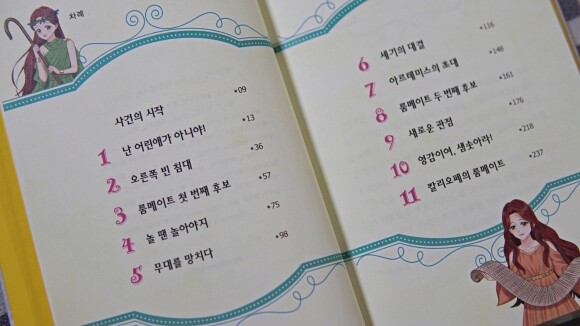 차례
사건의 시작 •09
1 난 어린애가 아니야! •13
2 오른쪽 빈 침대 •36
3 룸메이트 첫 번째 후보 •57
4 놀 땐 놀아야지 •75
5 무대를 망치다 •98
6 세기의 대결 •116
7 아르테미스의 초대 •148
8 룸메이트 두 번째 후보 •161
9 새로운 관점 •176
10 영감이여, 샘솟아라! •218
11 칼리오페의 룸메이트 •237